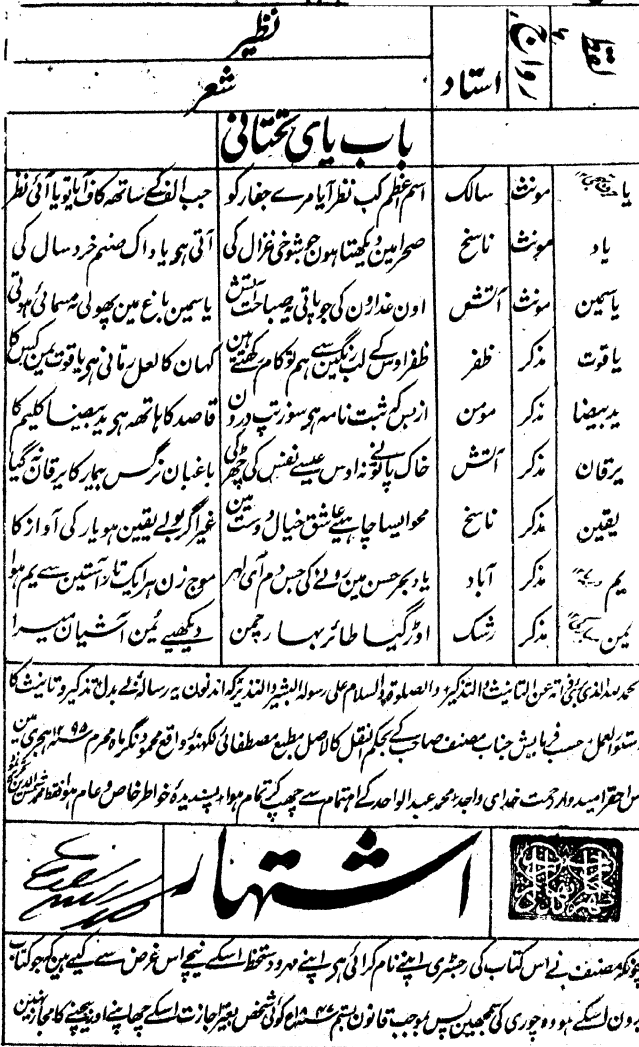 لفظ رواج استاد نظیر
شعر
باب یای تحتانی
یا مونث سالک اسم اعظم کب نظر آیا مرے جفار کو جب الف کے ساتھ کاف آیا تو یا آئی نظر
یاد مونث ناسخ صحرا مین دیکھتا ہون جو شوخی غزال کی آتی ہو یاد اک صنم خرد سال کی
یاسمین مونث آتش اون عذارون کی جو پاتی یہ صباحت آتش یاسمین باغ مین پھولی نہ سمائی ہوتی
یاقوت مذکر ظفر ظفر اوس کے لب رنگین سے ہم تو کام رکھتے ہین کہان کا لعل رمانی ہو یاقوت یمن کس کا
ید بیضا مذکر مومن ازبس کہ ثبت نامہ ہو سوز تپ درون قاصد کا ہاتھ ہو ید بیضا کلیم کا
یرقان مذکر آتش خاک پا نے تو نہ اوس عیسے نفس کی چھڑکی باغبان نرگس بیمار کا یرقان نہ گیا
یقین مذکر ناسخ محو ایسا چاہیے عاشق خیال دوست مین غیر اگر بولے یقین ہو یار کی آواز کا
یم مذکر آباد یاد بحر حسن مین رونے کی جس دم آی لہر موج زن ہر ایک تار آستین سے یم ہوا
یمن مذکر رشک اوڑ گیا طائر بہار چمن دیکھیے یمن آشیان میرا
الحمد للہ الذی نزہ ذاتہ عن التانیث والتذکیر والصلوۃ والسلام علی رسولہ البشیر والنذیر کہ اندنون یہ رسالۂ بے بدل تذکیر و تانیث کا
دستور العمل حسب فرمایش جناب مصنف صاحب کے بحکم النقل کالاصل مطبع مصطفائی لکھنؤ واقع محمود نگر ماہ محرم ۱۲۹۵ ہجری مین
اس احقر امیدوار رحمت خدای واحد محمد عبد الواحد کے اہتمام سے چھپ کے تمام ہوا پسندیدۂ خواطر خاص و عام ہوا فقط
اشتہار
چونکہ مصنف نے اس کتاب کی رجسٹری اپنے نام کرائی ہی اپنے مہر و دستخط اسکے نیچے اس غرض سے کیے ہین کہ جو کتاب
بدون اسکے ہو وہ چوری کی سمجھین پس بموجب قانون بستم ۱۸۴۷ع کوئی شخص بغیر اجازت اسکے چھاپنے اور بیچنے کا مجاز نہین